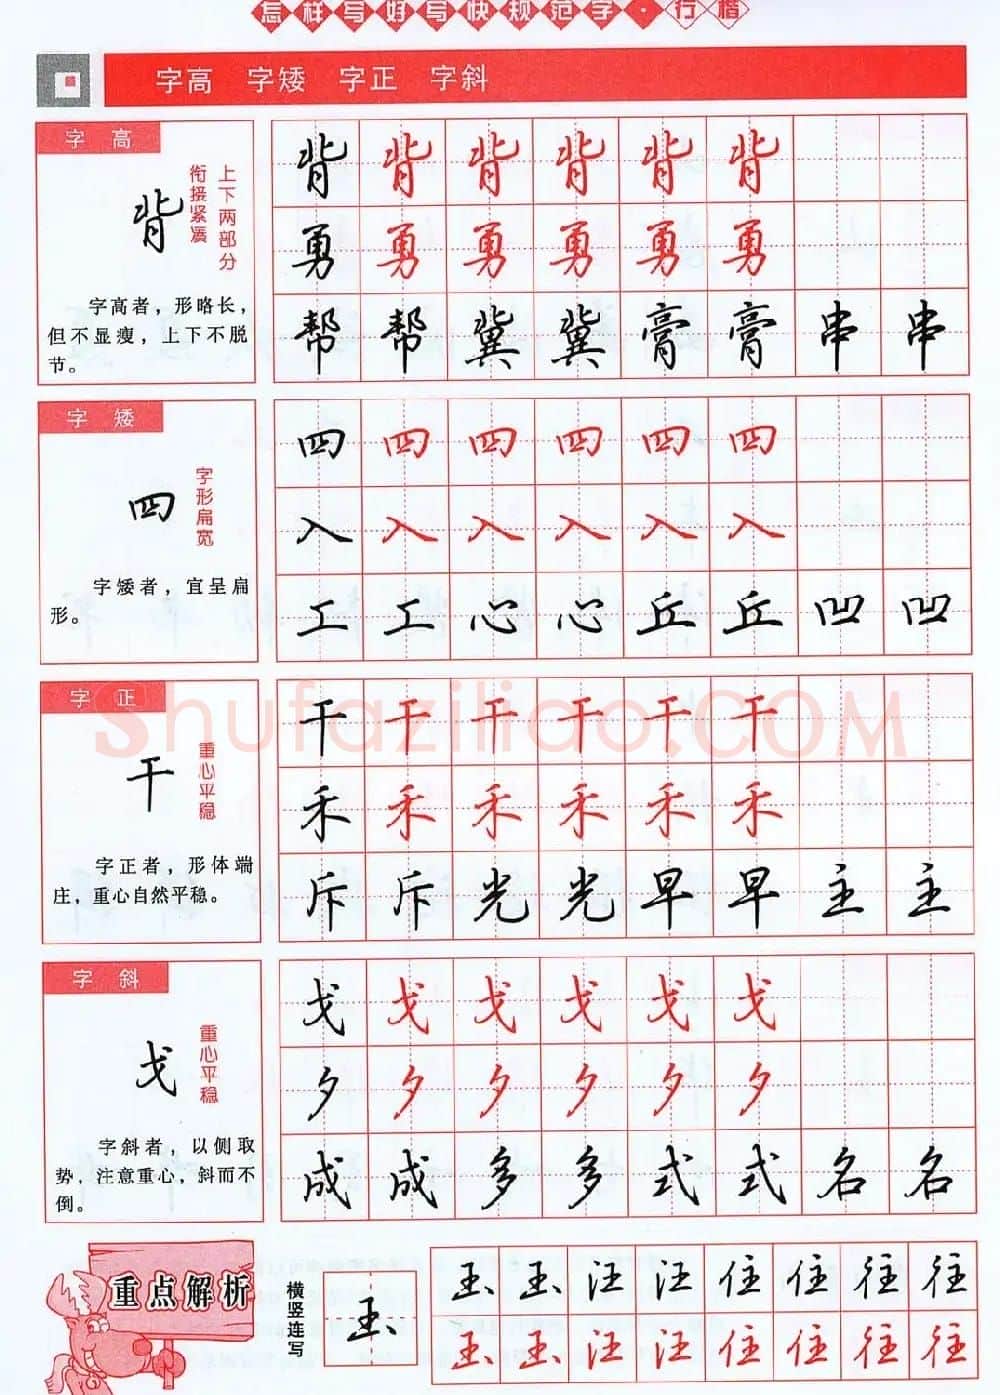 怎样写好写快规范字·行楷
字高 字矮 字正 字斜
字高
背
上下两部分
衔接紧凑
字高者，形略长，
但不显瘦，上下不脱
节。
背 背 背 背 背 背
勇 勇 勇 勇 勇 勇
帮 帮 冀 冀 膏 膏 串 串
字矮
四
字形扁宽
字矮者，宜呈扁
形。
四 四 四 四 四 四
入 入 入 入 入 入
工 工 心 心 丘 丘 凹 凹
字正
干
重心平稳
字正者，形体端
庄，重心自然平稳。
干 干 干 干 干 干
禾 禾 禾 禾 禾 禾
斥 斥 光 光 早 早 主 主
Shufaziliao.COM
字斜
戈
重心平稳
字斜者，以侧取
势，注意重心，斜而不
倒。
戈 戈 戈 戈 戈 戈
夕 夕 夕 夕 夕 夕
成 成 多 多 式 式 名 名
重点解析
横竖连写
玉
玉 玉 汪 汪 住 住 往 往
玉 玉 汪 汪 住 住 往 往